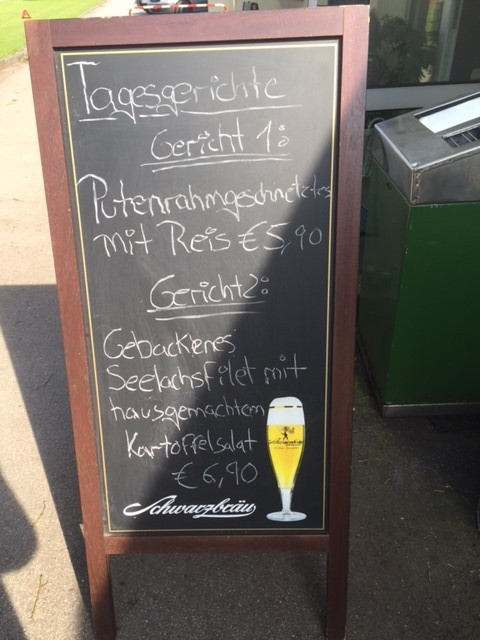 Tagesgerichte
Gericht 1:
Putenrahmgeschnetzeltes
mit Reis €5,90
Gericht 2:
Gebackenes
Seelachsfilet mit
hausgemachtem
Kartoffelsalat
€ 6,90
Schwarzbräu